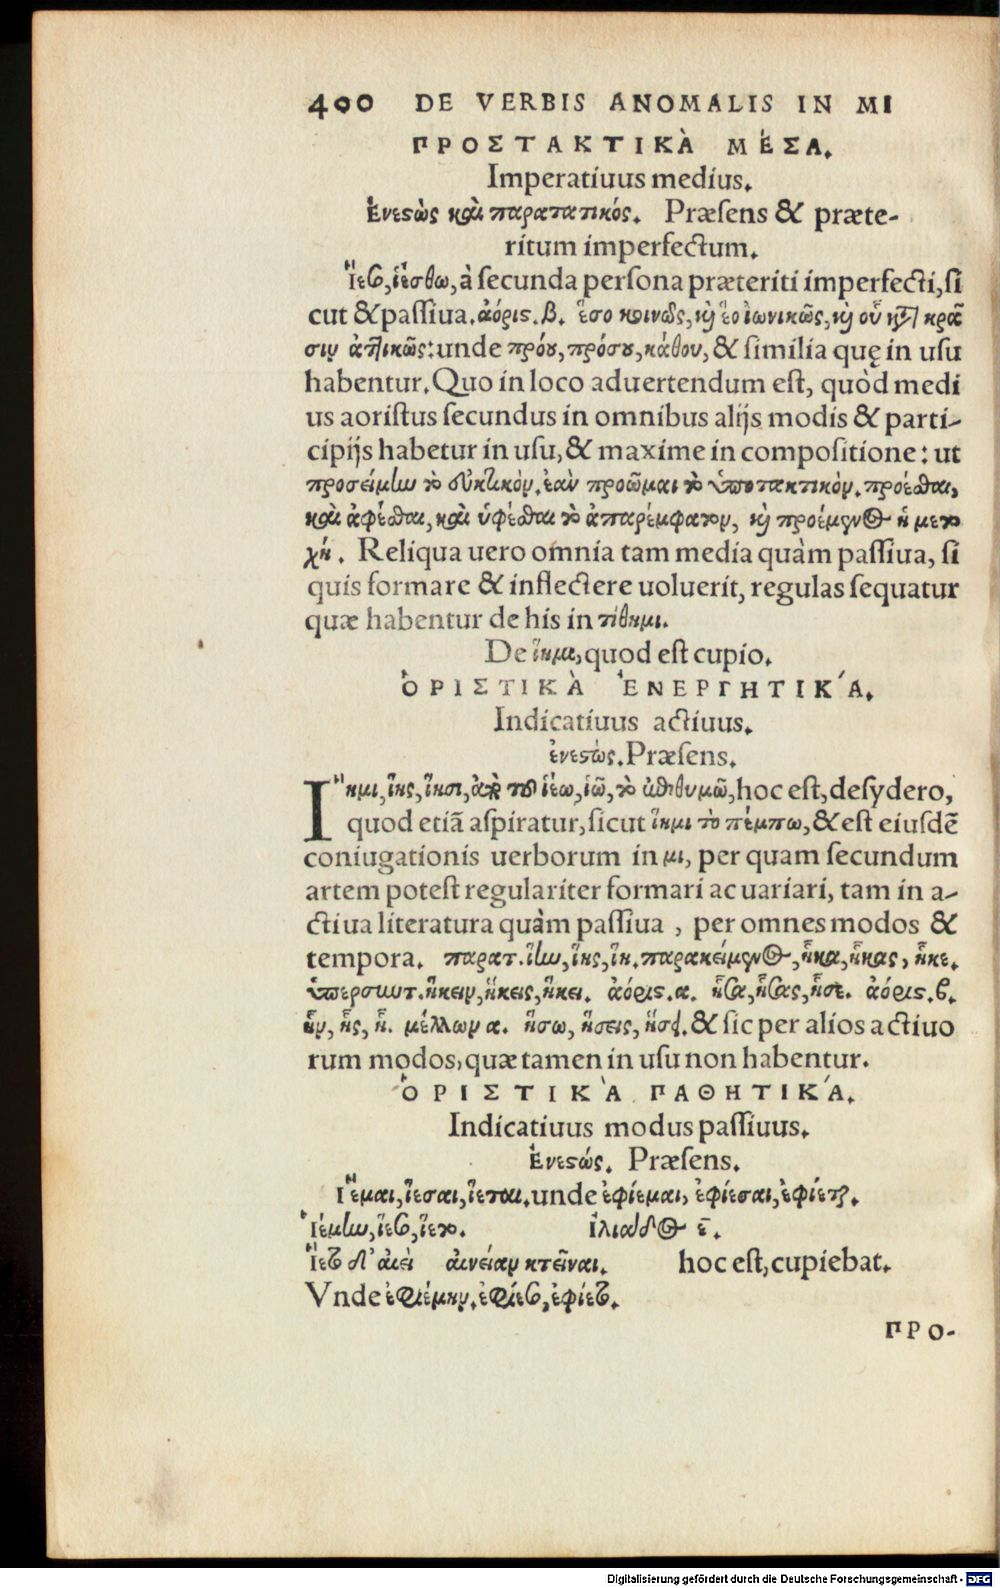 400 DE VERBIS ANOMALIS IN MI
ΠΡΟΣΤΑΚΤΙΚᾺ ΜΈΣΑ.
Imperatiuus medius.
Ἐνεϛὼς καὶ παρατατικός. Præsens & præte-
ritum imperfectum.
Ἵεσο, ἱέσθω, à secunda persona præteriti imperfecti, si
cut & passiua. ἀόριϛ. β. ἕσο κοινῶς, καὶ ἕο ἰωνικῶς, καὶ οὗ κατὰ κρᾶ
σιν ἀττικῶς: unde πρόου, πρόσου, κάθου, & similia quę in usu
habentur. Quo in loco aduertendum est, quòd medi
us aoristus secundus in omnibus alijs modis & parti-
cipijs habetur in usu, & maxime in compositione: ut
προσείμην τὸ εὐκτικὸν. ἐὰν προῶμαι τὸ ὑποτακτικὸν. προέσθαι,
καὶ ἀφέσθαι, καὶ ὑφέσθαι τὸ ἀπαρέμφατον, καὶ προέμενος ἡ μετο
χή. Reliqua uero omnia tam media quàm passiua, si
quis formare & inflectere uoluerit, regulas sequatur
quæ habentur de his in τίθημι.
De ἵημι, quod est cupio.
ὉΡΙΣΤΙΚᾺ ἘΝΕΡΓΗΤΙΚΆ.
Indicatiuus actiuus.
ἐνεϛώς. Præsens.
Ἵημι, ἵης, ἵησι, ἀπὸ τοῦ ἱέω, ἱῶ, τὸ ἐπιθυμῶ, hoc est, desydero,
quod etiã aspiratur, sicut ἵημι τὸ πέμπω, & est eiusdẽ
coniugationis uerborum in μι, per quam secundum
artem potest regulariter formari ac uariari, tam in a-
ctiua literatura quàm passiua, per omnes modos &
tempora. παρατ. ἵην, ἵης, ἵη. παρακείμενος, ἧκα, ἧκας, ἧκε.
ὑπερσυντ. ἥκειν, ἥκεις, ἥκει. ἀόριϛ. α. ἧσα, ἧσας, ἧσε. ἀόριϛ. β.
ἧν, ἧς, ἧ. μέλλων α. ἥσω, ἥσεις, ἥσει. & sic per alios actiuo
rum modos, quæ tamen in usu non habentur.
ὉΡΙΣΤΙΚᾺ ΠΑΘΗΤΙΚΆ.
Indicatiuus modus passiuus.
Ἐνεϛώς. Præsens.
Ἵεμαι, ἵεσαι, ἵεται. unde ἐφίεμαι, ἐφίεσαι, ἐφίεται.
Ἱέμην, ἵεσο, ἵετο. ἰλιάδος ε̄.
Ἵετο δ' αἰεὶ αἰνείαν κτεῖναι. hoc est, cupiebat.
Vnde ἐφιέμην. ἐφίεσο, ἐφίετο.
ΠΡΟ-
Digitalisierung gefördert durch die Deutsche Forschungsgemeinschaft - DFG